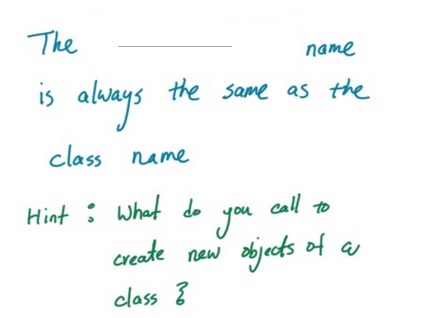 The ________ name
is always the same as the
class name
Hint : What do you call to
create new objects of a
class ?